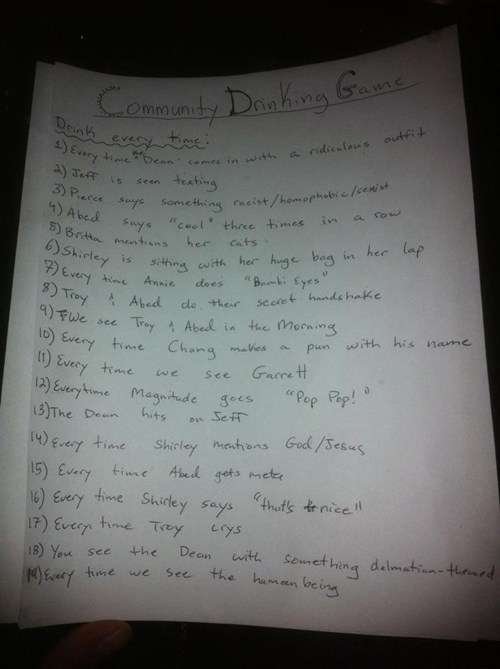 Community Drinking Game
Drink every time:
1) Every time the "Dean" comes in with a ridiculous outfit
2) Jeff is seen texting
3) Pierce says something racist/homophobic/sexist
4) Abed says "cool" three times in a row
5) Britta mentions her cats
6) Shirley is sitting with her huge bag in her lap
7) Every time Annie does "Bambi Eyes"
8) Troy & Abed do their secret handshake
9) We see Troy & Abed in the Morning
10) Every time Chang makes a pun with his name
11) Every time we see Garrett
12) Everytime Magnitude goes "Pop Pop!"
13) The Dean hits on Jeff
14) Every time Shirley mentions God/Jesus
15) Every time Abed gets meta
16) Every time Shirley says "that's nice"
17) Every time Troy crys
18) You see the Dean with something dalmation-themed
19) Every time we see the human being